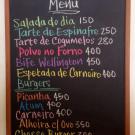 Menu
Salada do dia 150
Tarte de Espinafre 250
Tarte de Cogumelos 280
Polvo no Forno 400
Bife Wellington 450
Espetada de Carneiro 400
Burgers
Picanha 450
Atum 400
Carneiro 400
Alheira c/ Ovo 350
Cheese Burger